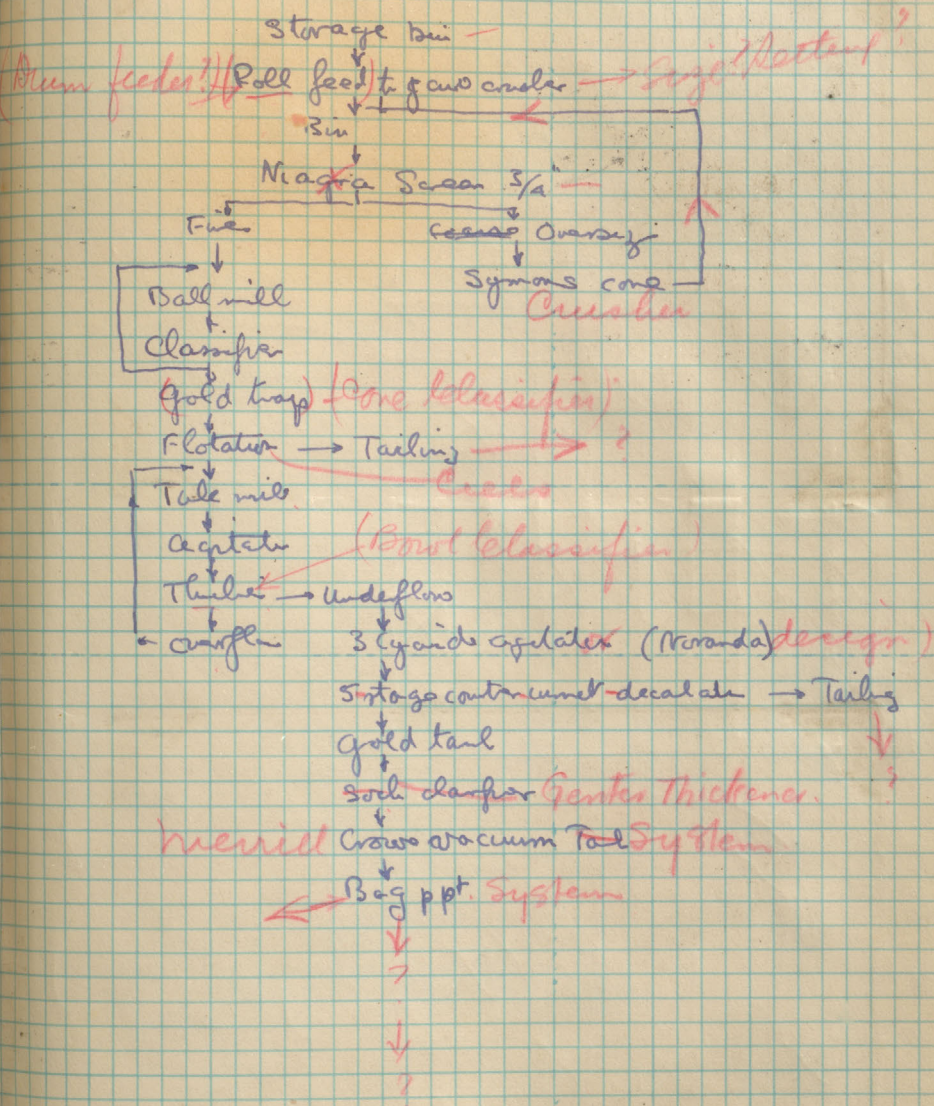 Storage bin ?
(Drum feeder?) (Roll feed) to gyro crusher Size? Setting?
Bin
Niagra Screen 3/4"
Fines Coarse Oversize
Ball mill Symons cone
Crusher
Classifier
(Gold trap) (Cone Classifier)
Flotation Tailing ?
Tube mill
Agitator (Bowl Classifier)
Thickener Underflow
overflow 3 Cyanide agitators (Noranda) design)
5 stage countercurrent decantation Tailing
Gold tank
Sock clarifier Genter Thickener ?
Merrill Crowe vacuum Tank System
Bag ppt. System
?
?